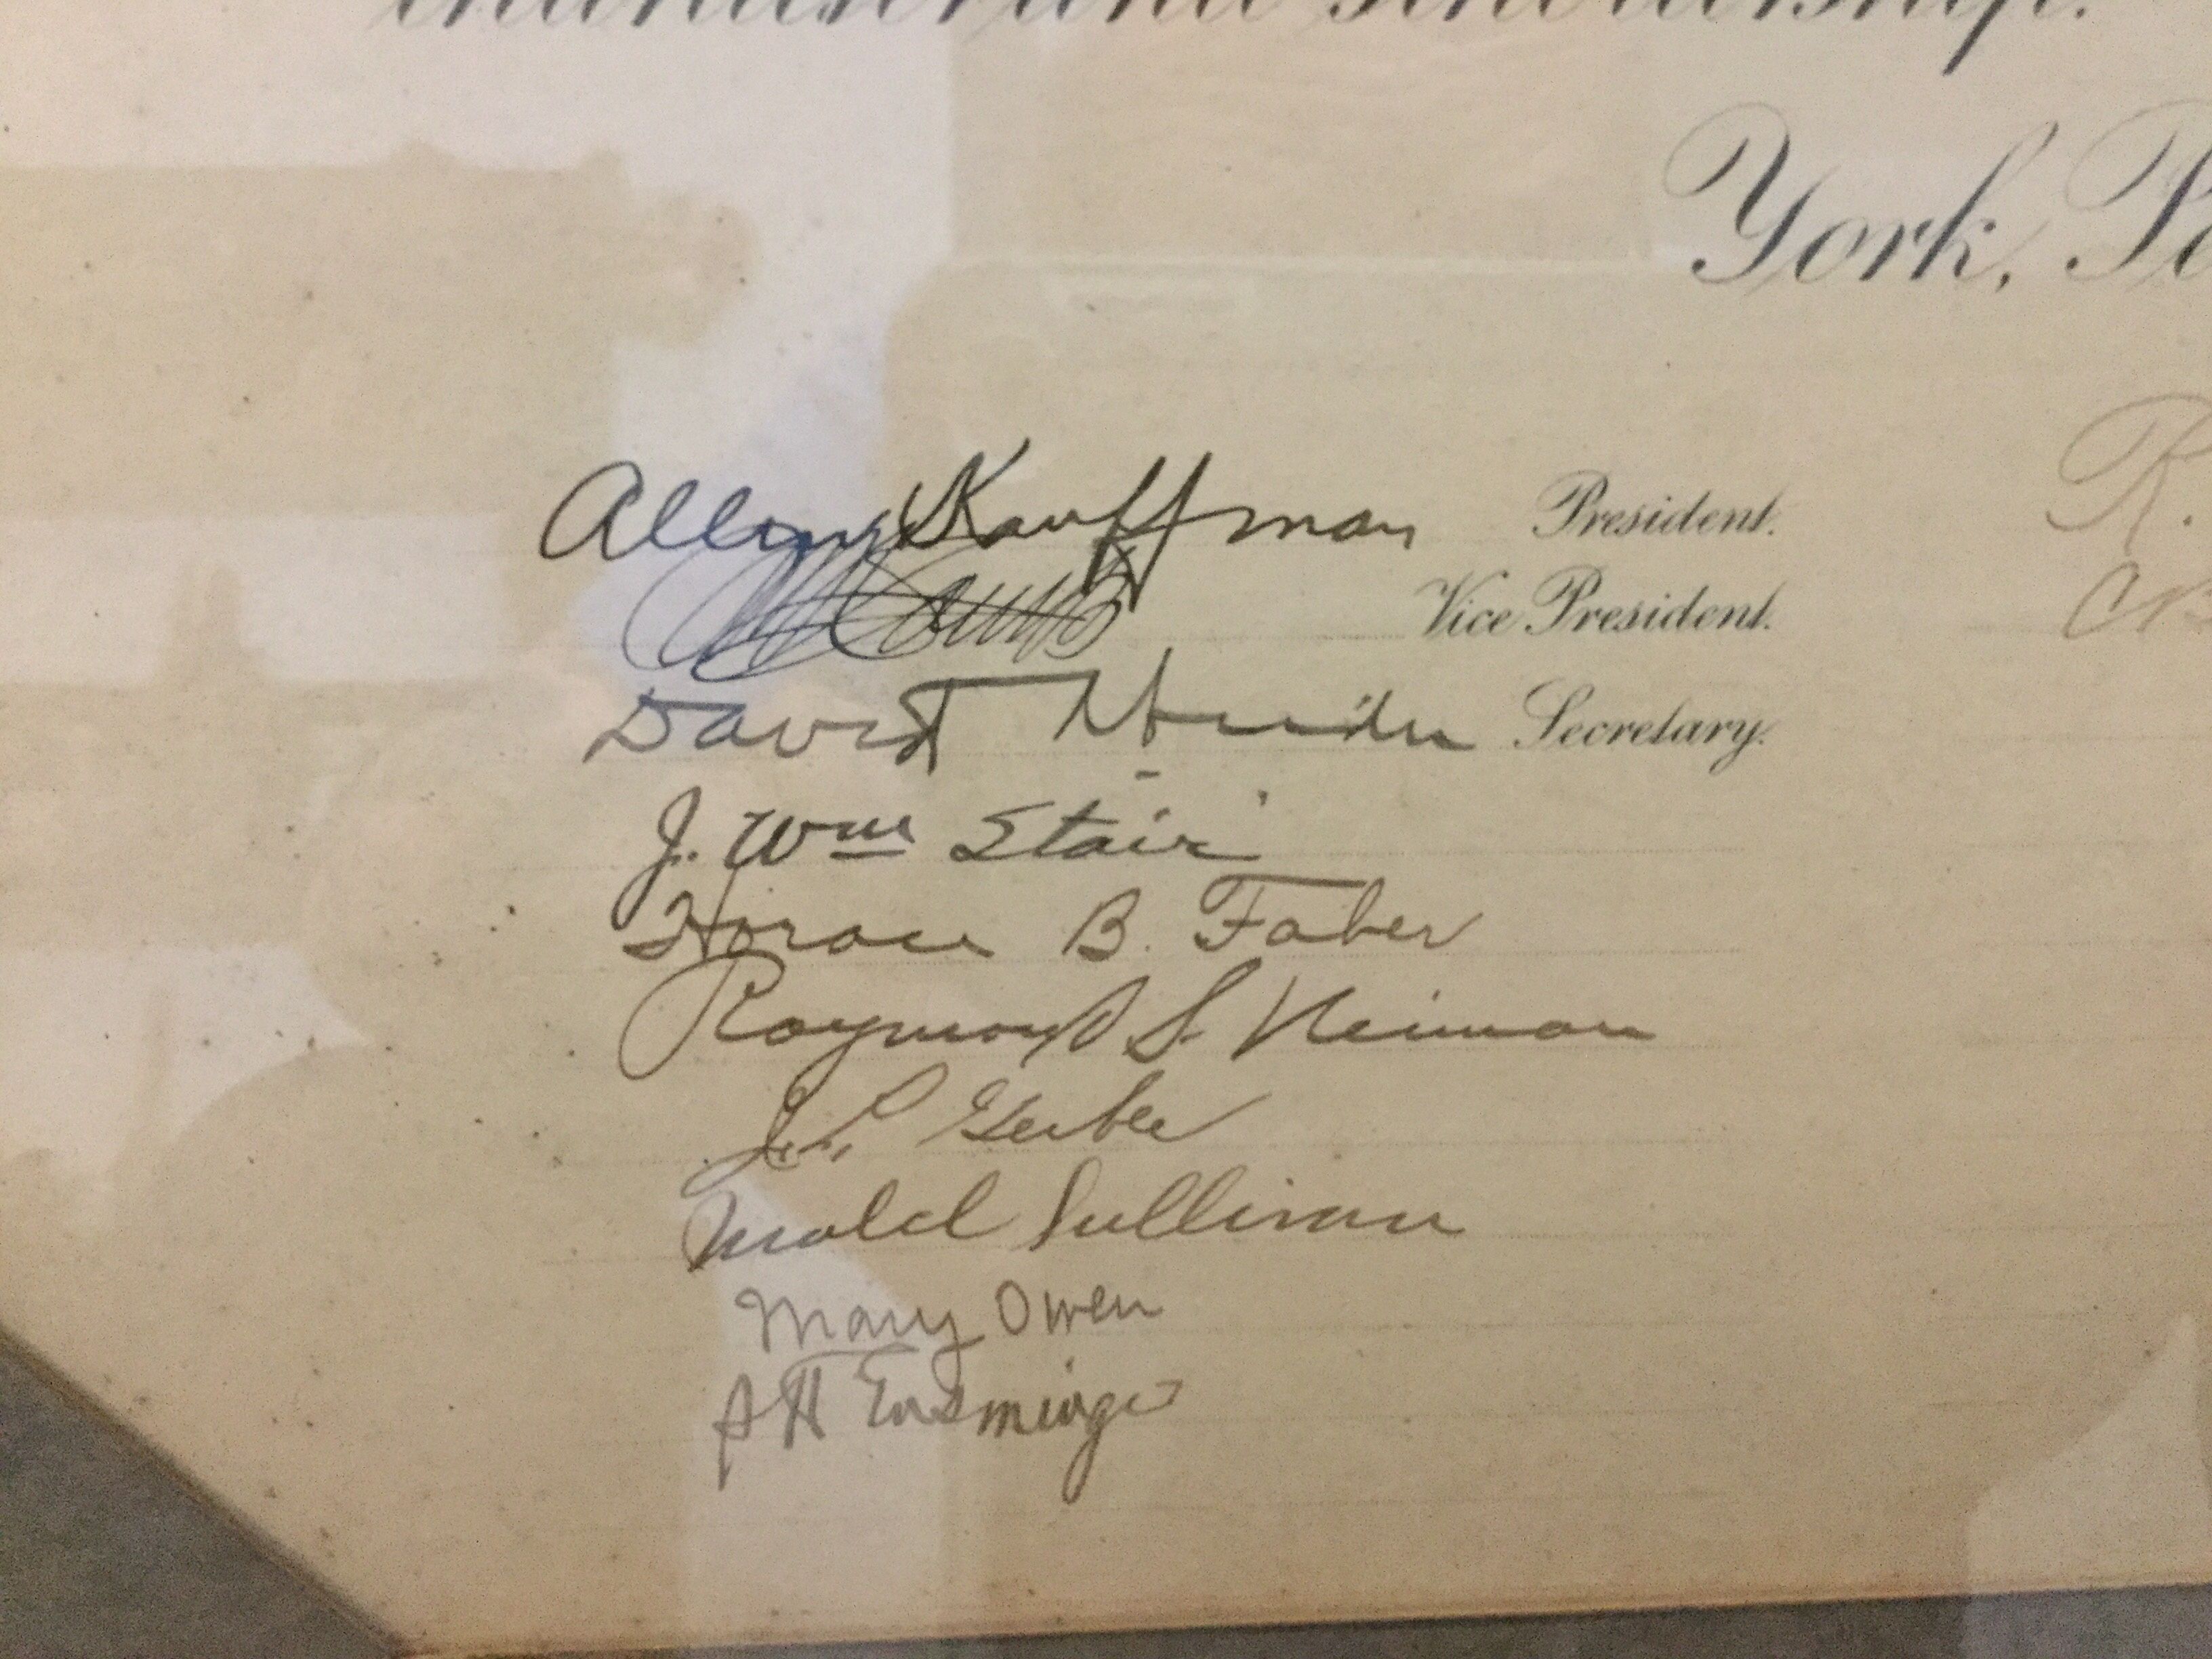 and scholarship.
York, Pa
Allen Kauffman President.
Vice President.
David Secretary.
J. Wm Stair
Horace B. Faber
Raymond S. Neiman
J. L. Gerber
Mabel Sullivan
Mary Owen
AH Ensminger
R.